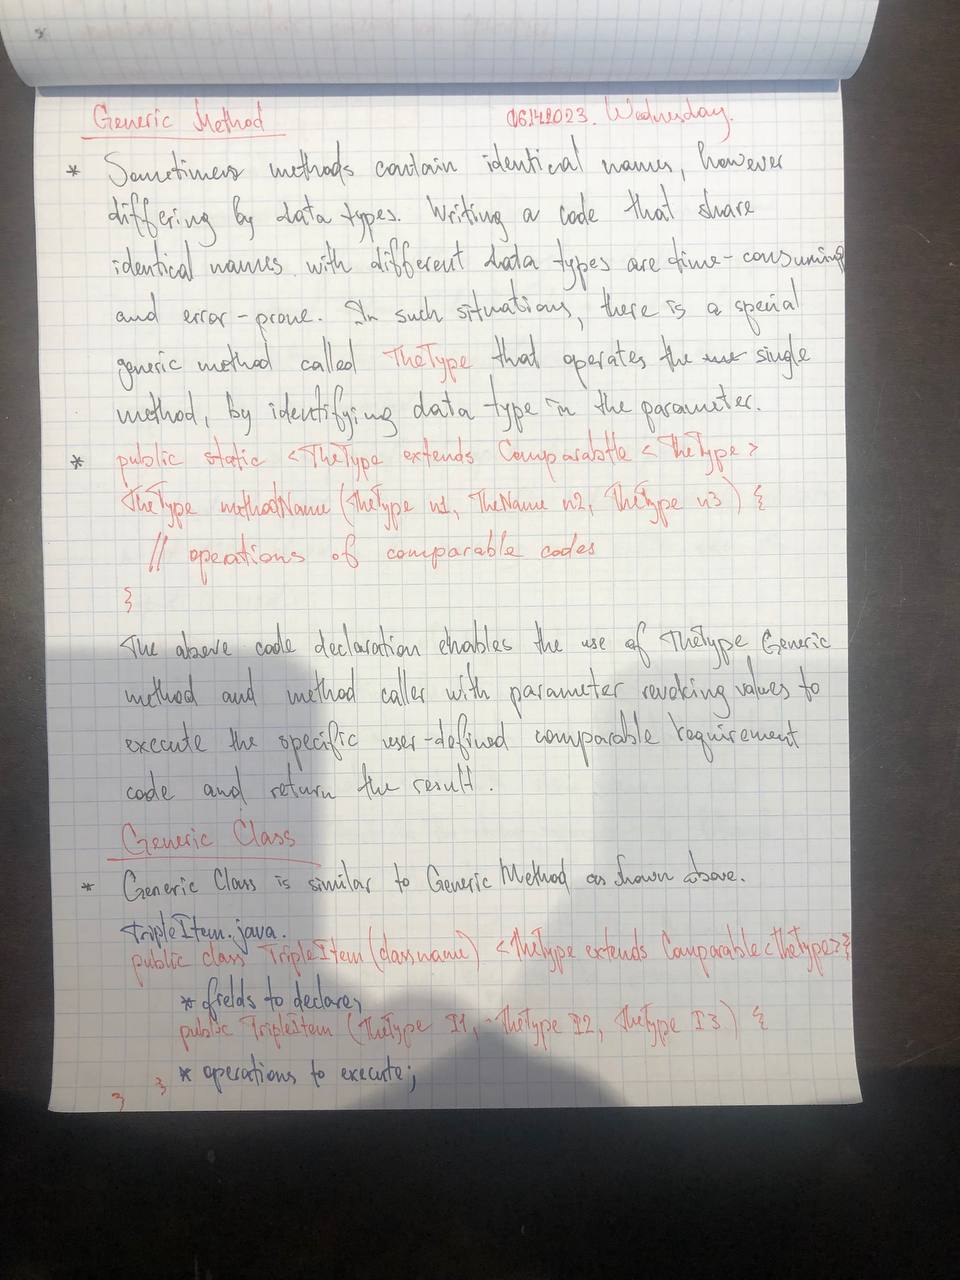 Generic Method
06142023. Wednesday.
* Sometimes methods contain identical names, however
differing by data types. Writing a code that share
identical names with different data types are time-consuming
and error-prone. In such situations, there is a special
generic method called TheType that operates the single
method, by identifying data type in the parameter.
* public static <TheType extends Comparable <TheType>
TheType methodName (TheType n1, TheName n2, TheType n3) {
// operations of comparable codes
}
The above code declaration enables the use of TheType Generic
method and method caller with parameter revoking values to
execute the specific user-defined comparable requirement
code and return the result.
Generic Class
* Generic Class is similar to Generic Method as shown above.
TripleItem.java.
public class TripleItem (classname) <TheType extends Comparable<TheType>{
* fields to declare;
public TripleItem (TheType I1, TheType I2, TheType I3) {
* operations to execute;
}
}